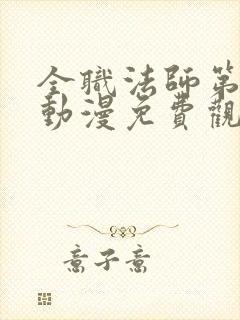 全職法師第
動漫免費觀
意子意